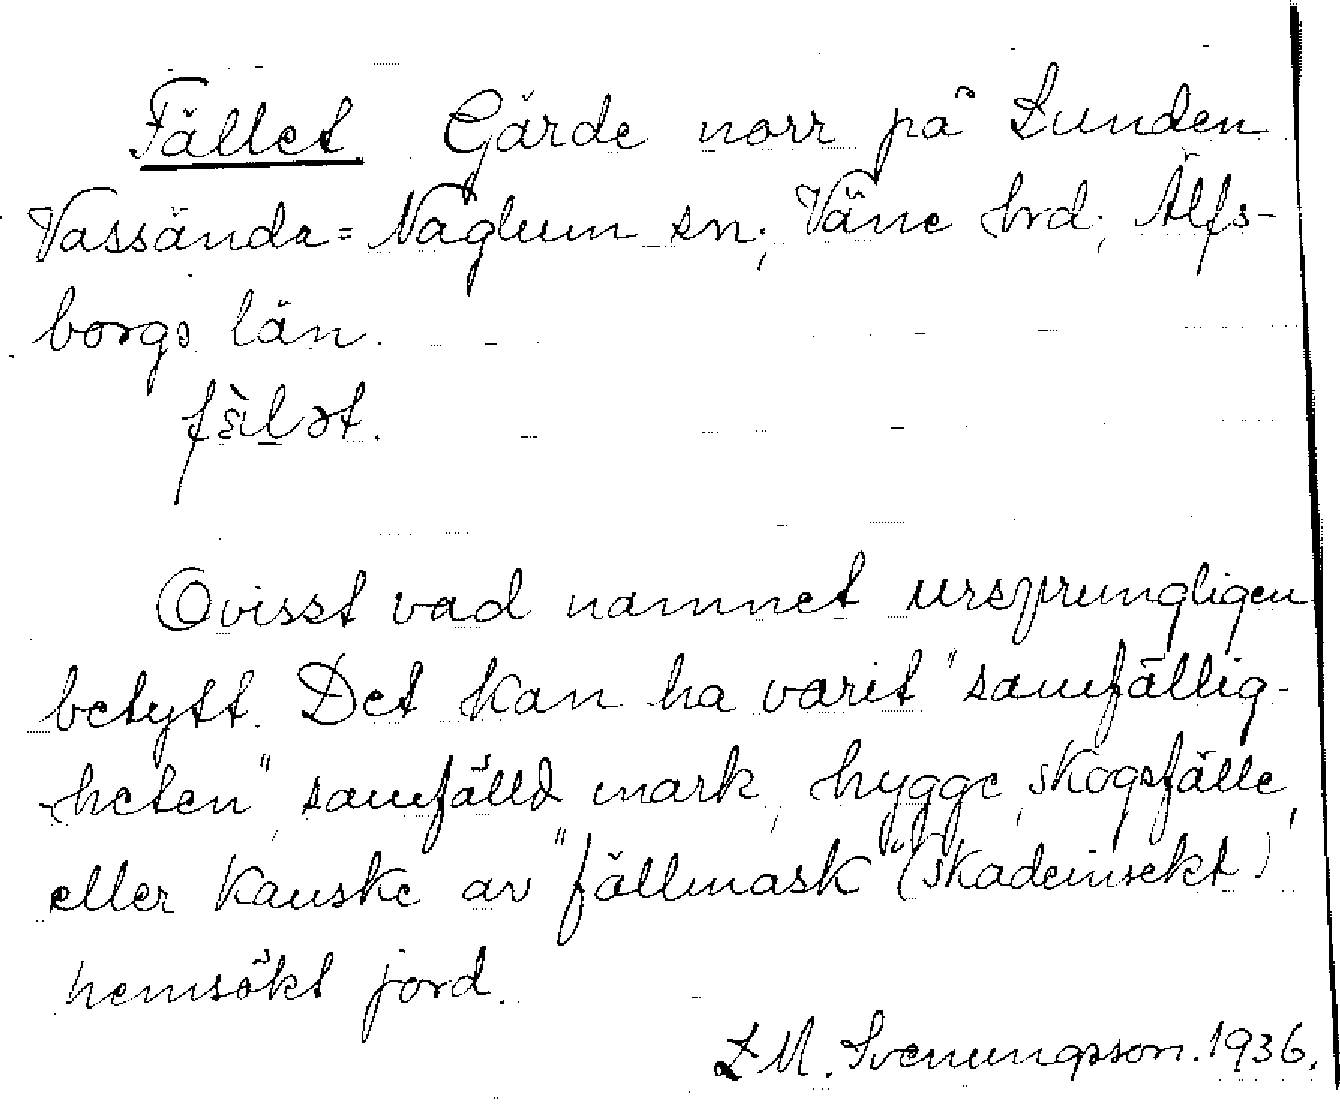 Fället Gärde norr på Lunden
Vassända=Naglum sn; Väne hrd; Älfs-
borgs län.
fä̀lət.
Ovisst vad namnet ursprungligen
betytt. Det kan ha varit "samfällig-
-heten", samfälld mark, hygge, skogsfälle,
eller kanske av "fällmask" (skadeinsekt)
hemsökt jord.
L M. Svenungsson. 1936.